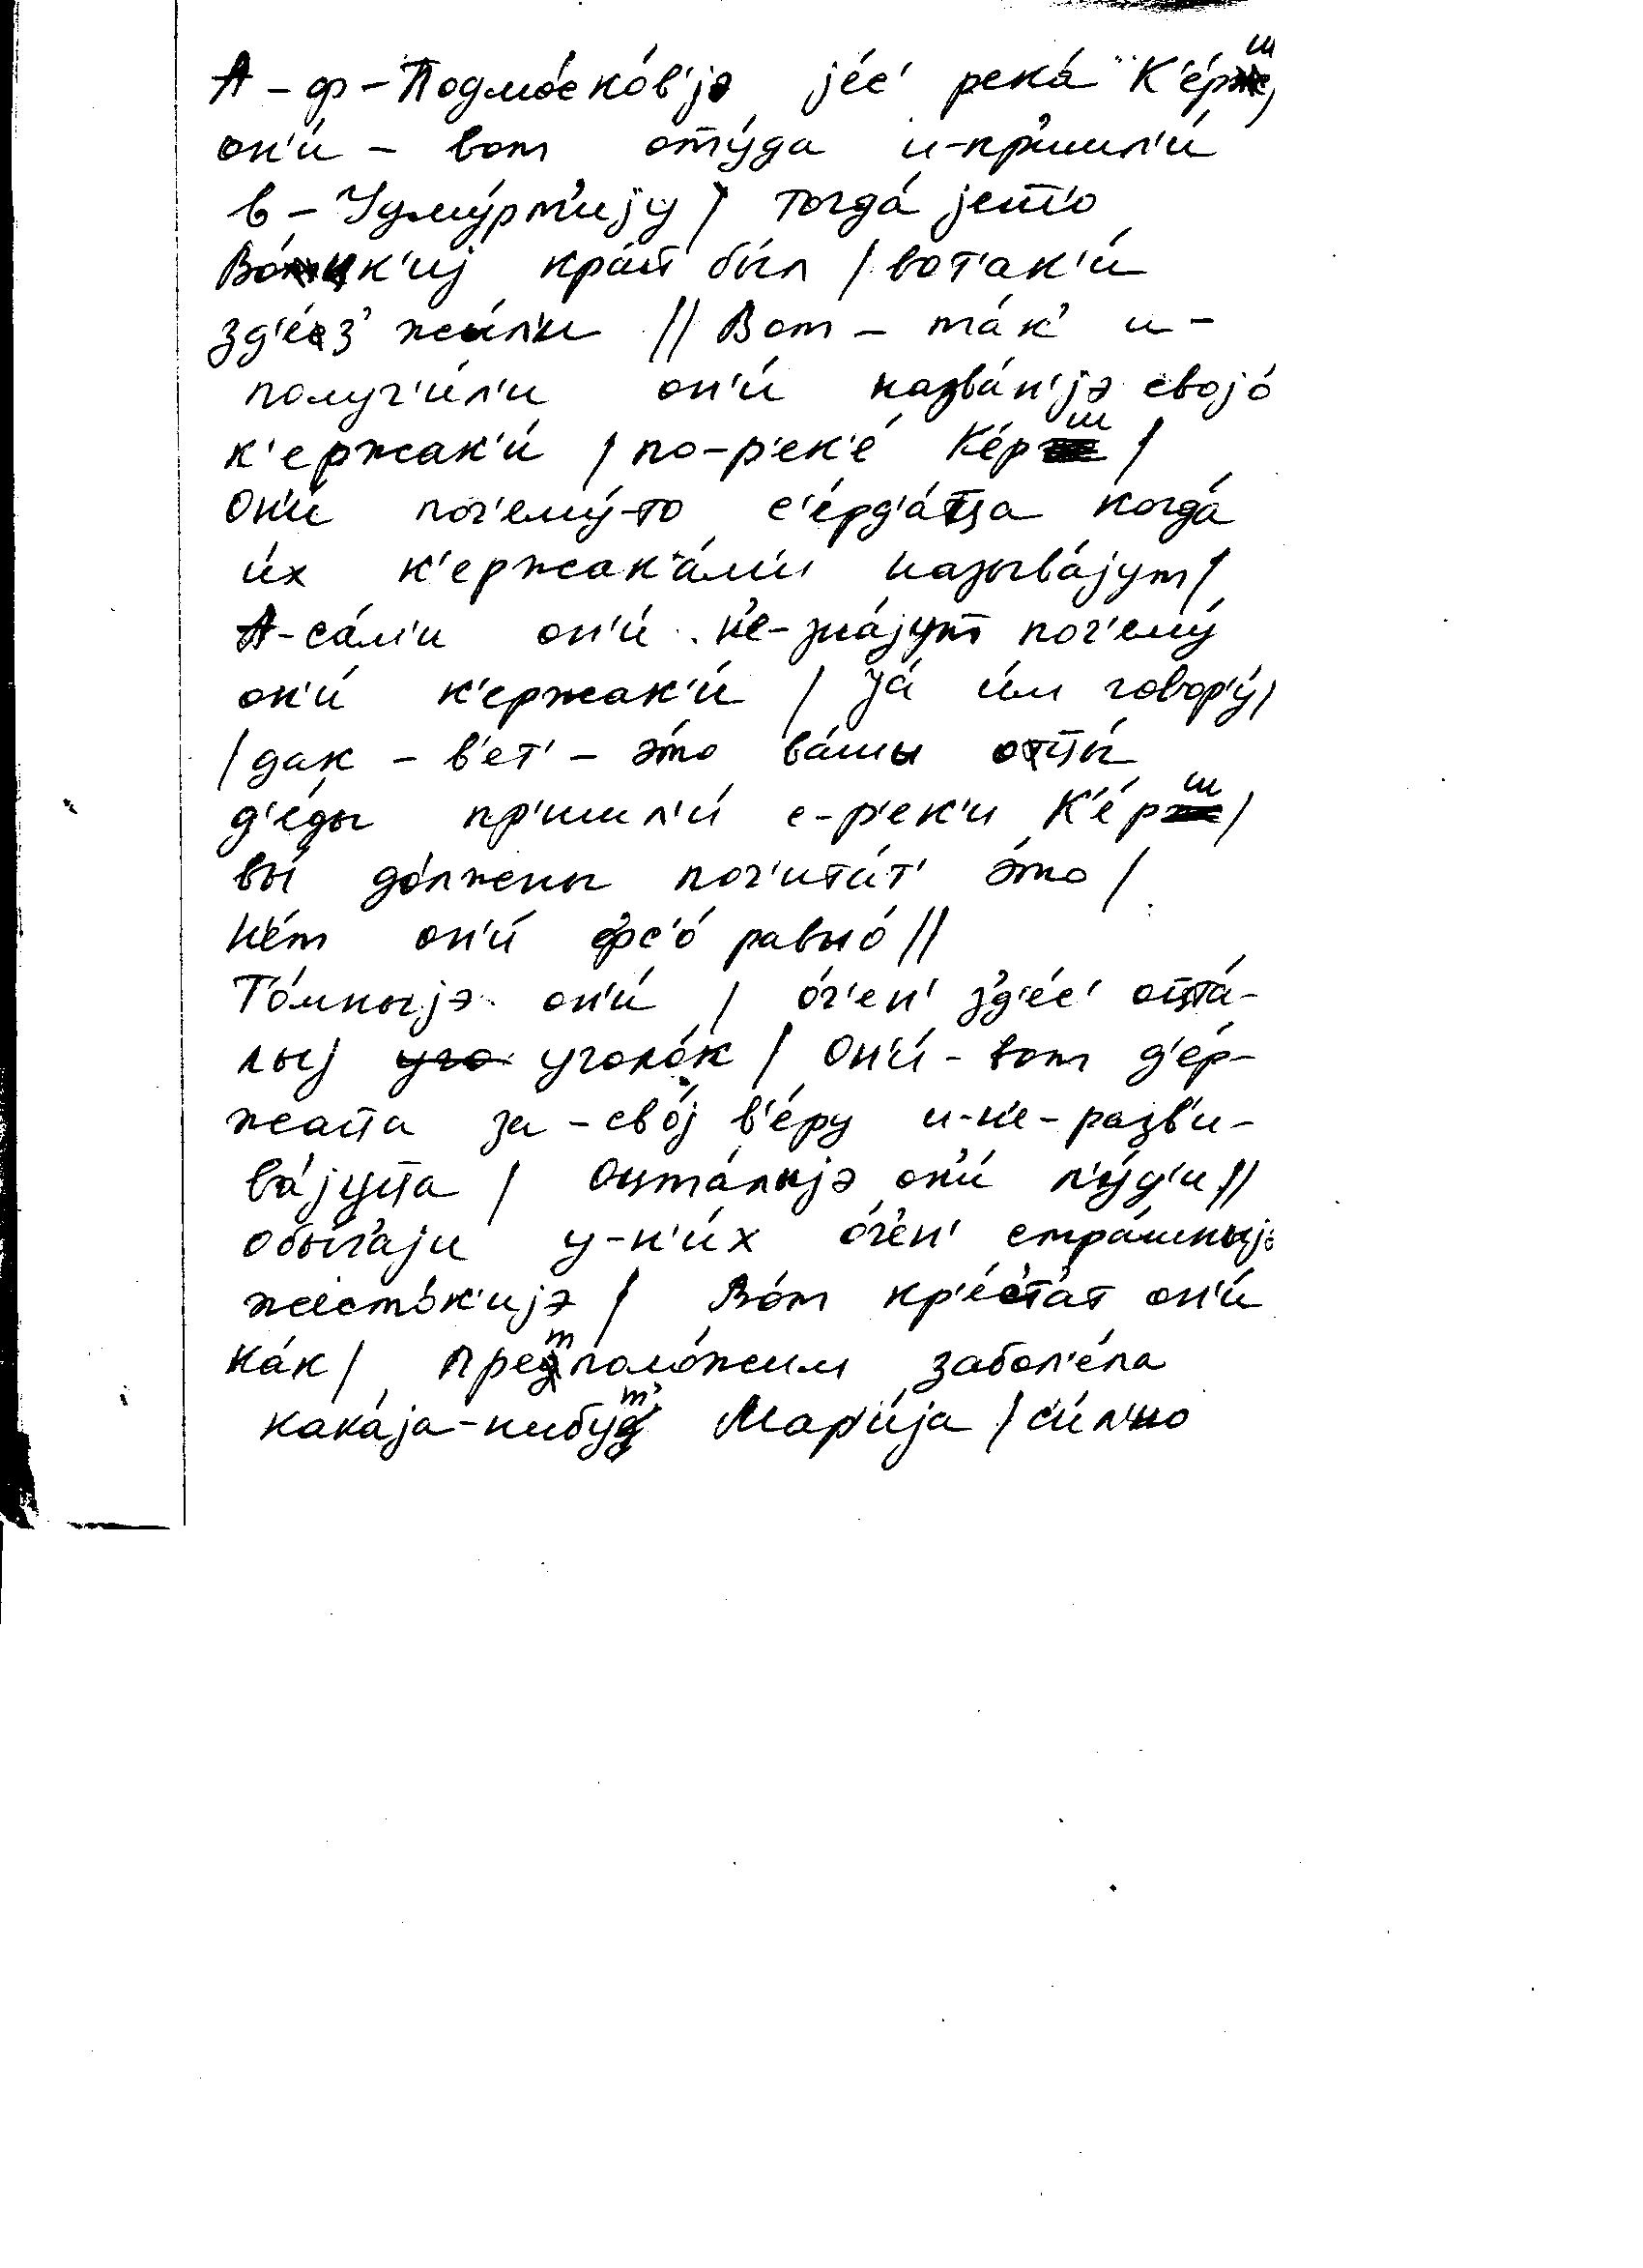 А – ф – Подмо́ско́в'јэ је́с' река́ К'е́рш,
он'и́ – вот оту́да и-пр'ишл'и́
в – Удму́рт'ију / тогда́ јешт'о
Во́цк'иј кра́й бы́л / вот'ак'и́
зд'е́з' жы́л'и // Вот – та́к' и –
получ'и́л'и он'и́ назва́н'јэ својо́
к'ержак'и́ / по-р'ек'е́ Ке́рш /
Он'и́ поч'ему́-то с'е́рд'а́тца когда́
и́х к'ержак'а́м'и называ́јут /
А-са́м'и он'и́ н'е-зна́јут поч'ему́
он'и́ к'ержак'и́ / Ја́ и́м говор'у́ /
/ дак – в'ет' – э́то ва́шы отцы́
д'е́ды пр'ишл'и́ с-р'ек'и К'е́рш /
вы́ до́лжны поч'ита́т' э́то /
Не́т он'и́ фс'о́ равно́ //
То́мныјэ он'и́ / о́ч'ен' зд'е́с' отста́-
лыј уголо́к / Он'и́ – вот д'е́р-
жатца за – сво́ј в'е́ру и-н'е-разв'и-
ва́јутца / Оцта́лыјэ он'и́ л'у́д'и //
Обы́ч'аји у-н'и́х о́ч'ен' стра́шныјэ
жысто́к'ијэ / Во́т кр'е́ст'ат он'и́
ка́к / Претполо́жим забол'е́ла
кака́ја-нибут' Мар'и́ја / с'и́л'но